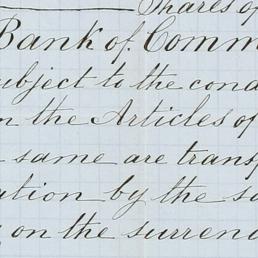 Shares of
Bank of Comm
ubject to the cond
n the Articles of
same are transf
ation by the sa
on the surrend